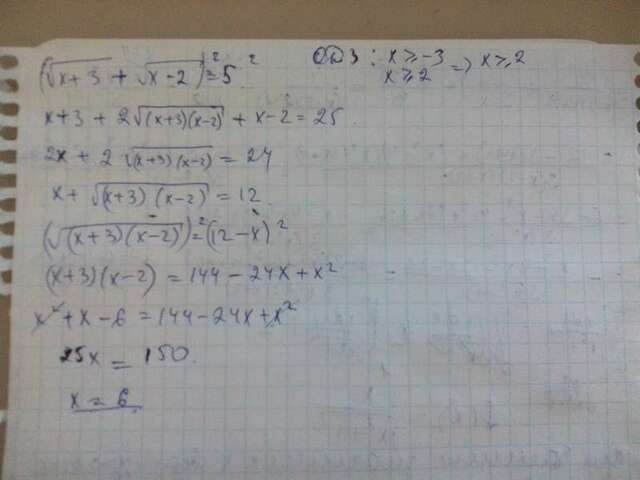 (√(x+3) + √(x-2))² = 5²
ОДЗ: x ≥ -3
x ≥ 2 => x ≥ 2
x+3 + 2√((x+3)(x-2)) + x-2 = 25.
2x + 2√((x+3)(x-2)) = 24
x + √((x+3)(x-2)) = 12
(√((x+3)(x-2)))² = (12-x)²
(x+3)(x-2) = 144 - 24x + x²
x² + x - 6 = 144 - 24x + x²
25x = 150.
x = 6.